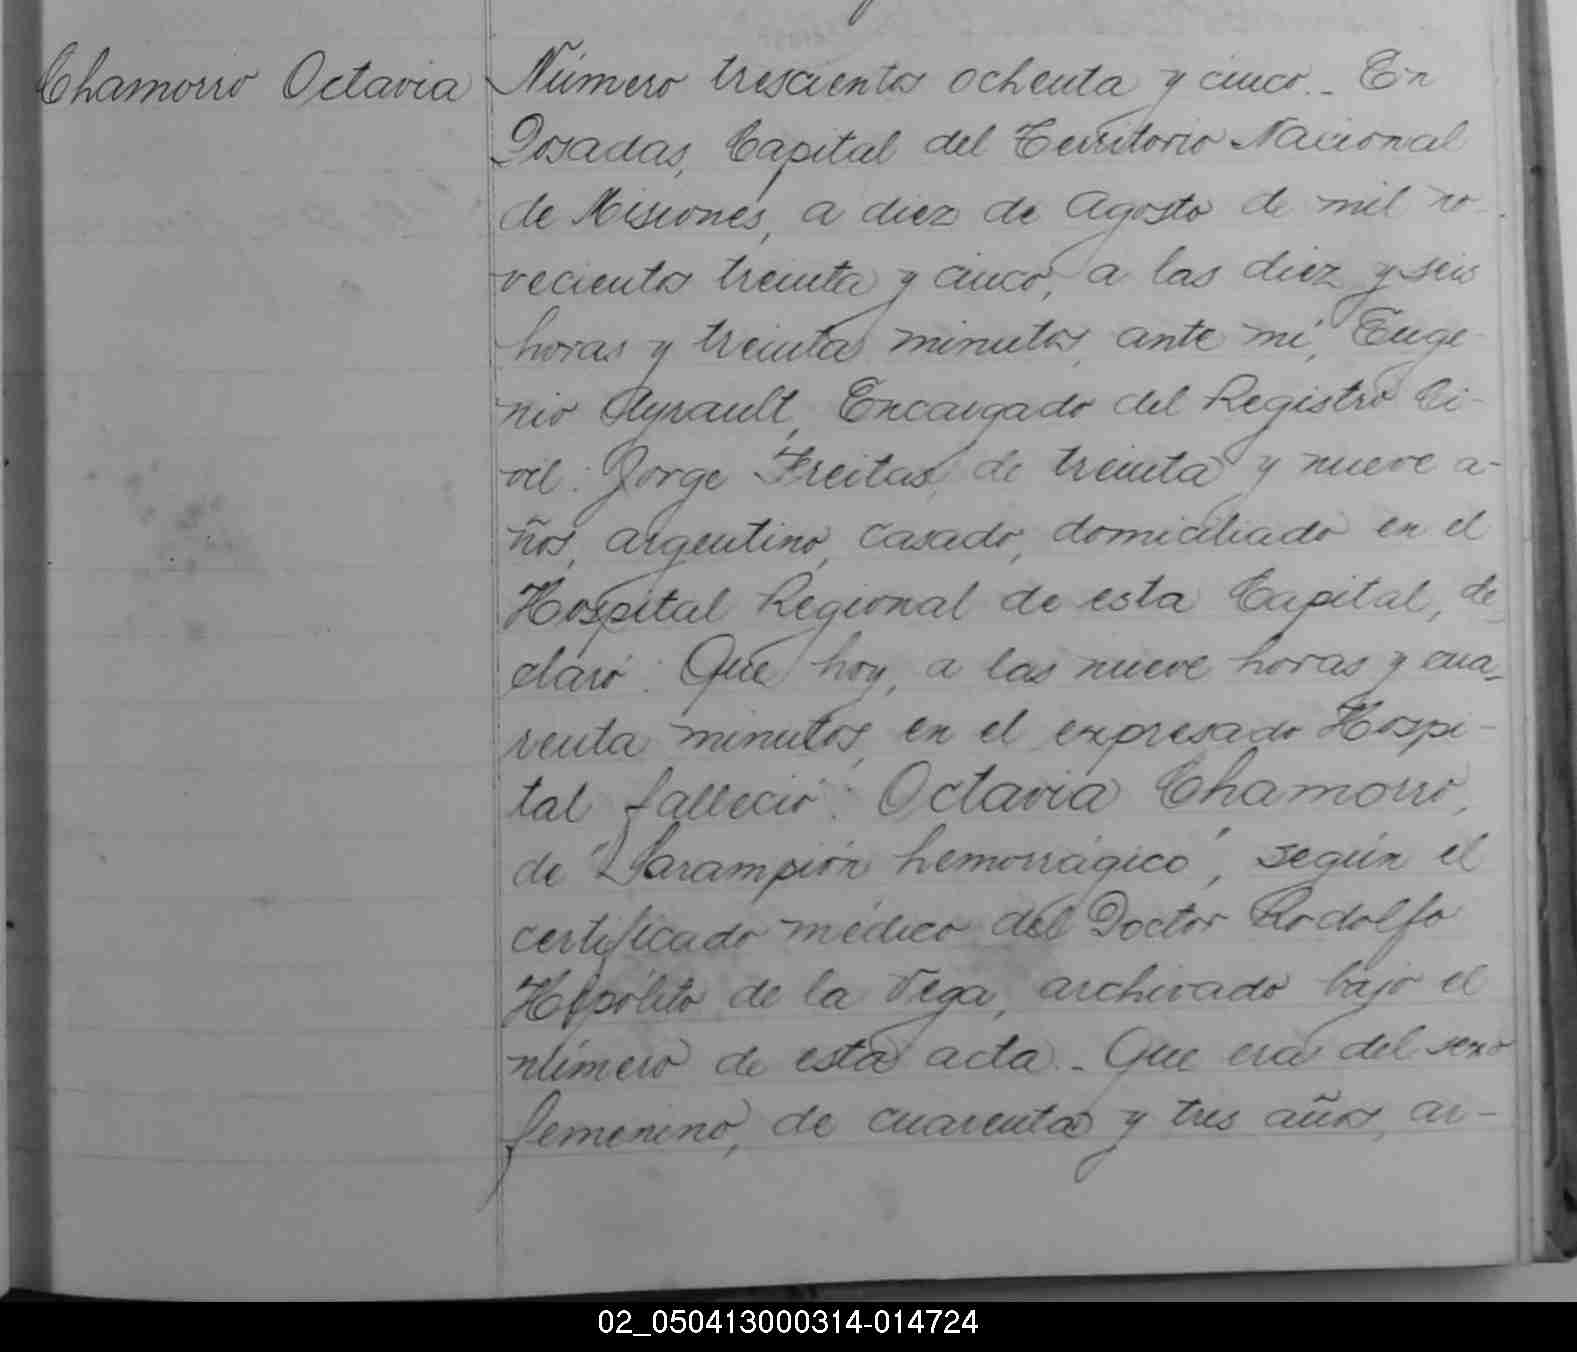 Chamorro Octavia
Número trescientos ochenta y cinco.- En
Posadas, Capital del Territorio Nacional
de Misiones, a diez de Agosto de mil no-
vecientos treinta y cinco, a las diez y seis
horas y treinta minutos, ante mí, Euge-
nio Ayrault, Encargado del Registro Ci-
vil: Jorge Freitas, de treinta y nueve a-
ños, argentino, casado, domiciliado en el
Hospital Regional de esta Capital, de-
claró: Que hoy, a las nueve horas y cua-
renta minutos, en el expresado Hospi-
tal falleció: Octavia Chamorro,
de "Sarampión hemorrágico", según el
certificado médico del Doctor Rodolfo
Hipólito de la Vega, archivado bajo el
número de esta acta.- Que era del sexo
femenino, de cuarenta y tres años, ar-
02_050413000314-014724